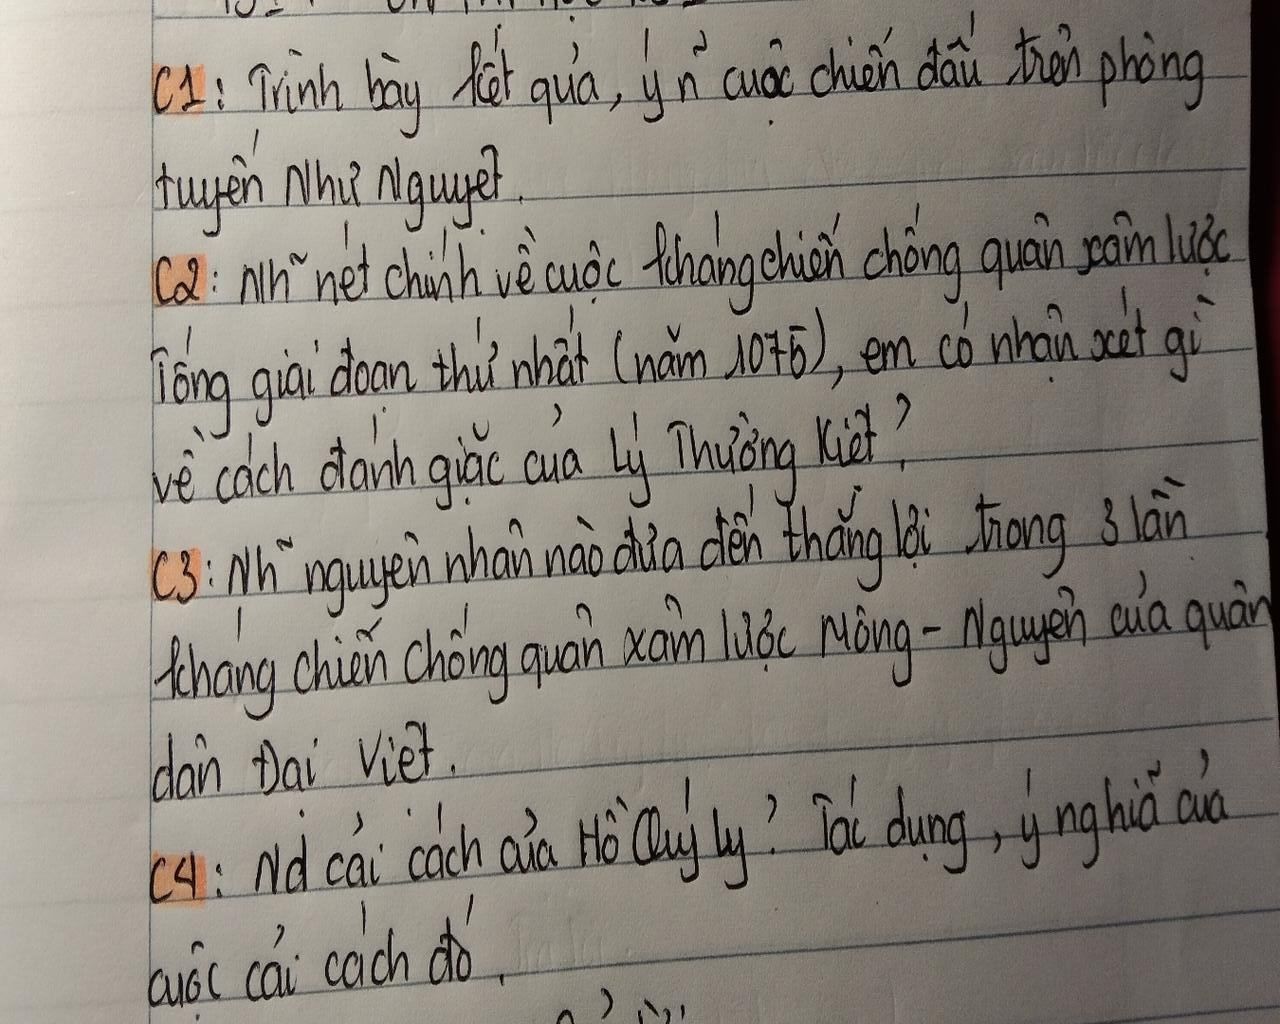 C1: Trình bày kết quả, ý n~ cuộc chiến đấu trên phòng
tuyến Như Nguyệt.
C2: Nh~ nét chính về cuộc kháng chiến chống quân xâm lược
Tống giai đoạn thứ nhất (năm 1075), em có nhận xét gì
về cách đánh giặc của Lý Thường Kiệt?
C3: Nh~ nguyên nhân nào đưa đến thắng lợi trong 3 lần
kháng chiến chống quân xâm lược Mông - Nguyên của quân
dân Đại Việt.
C4: Nd cải cách của Hồ Quý Ly? Tác dụng, ý nghĩa của
cuộc cải cách đó.